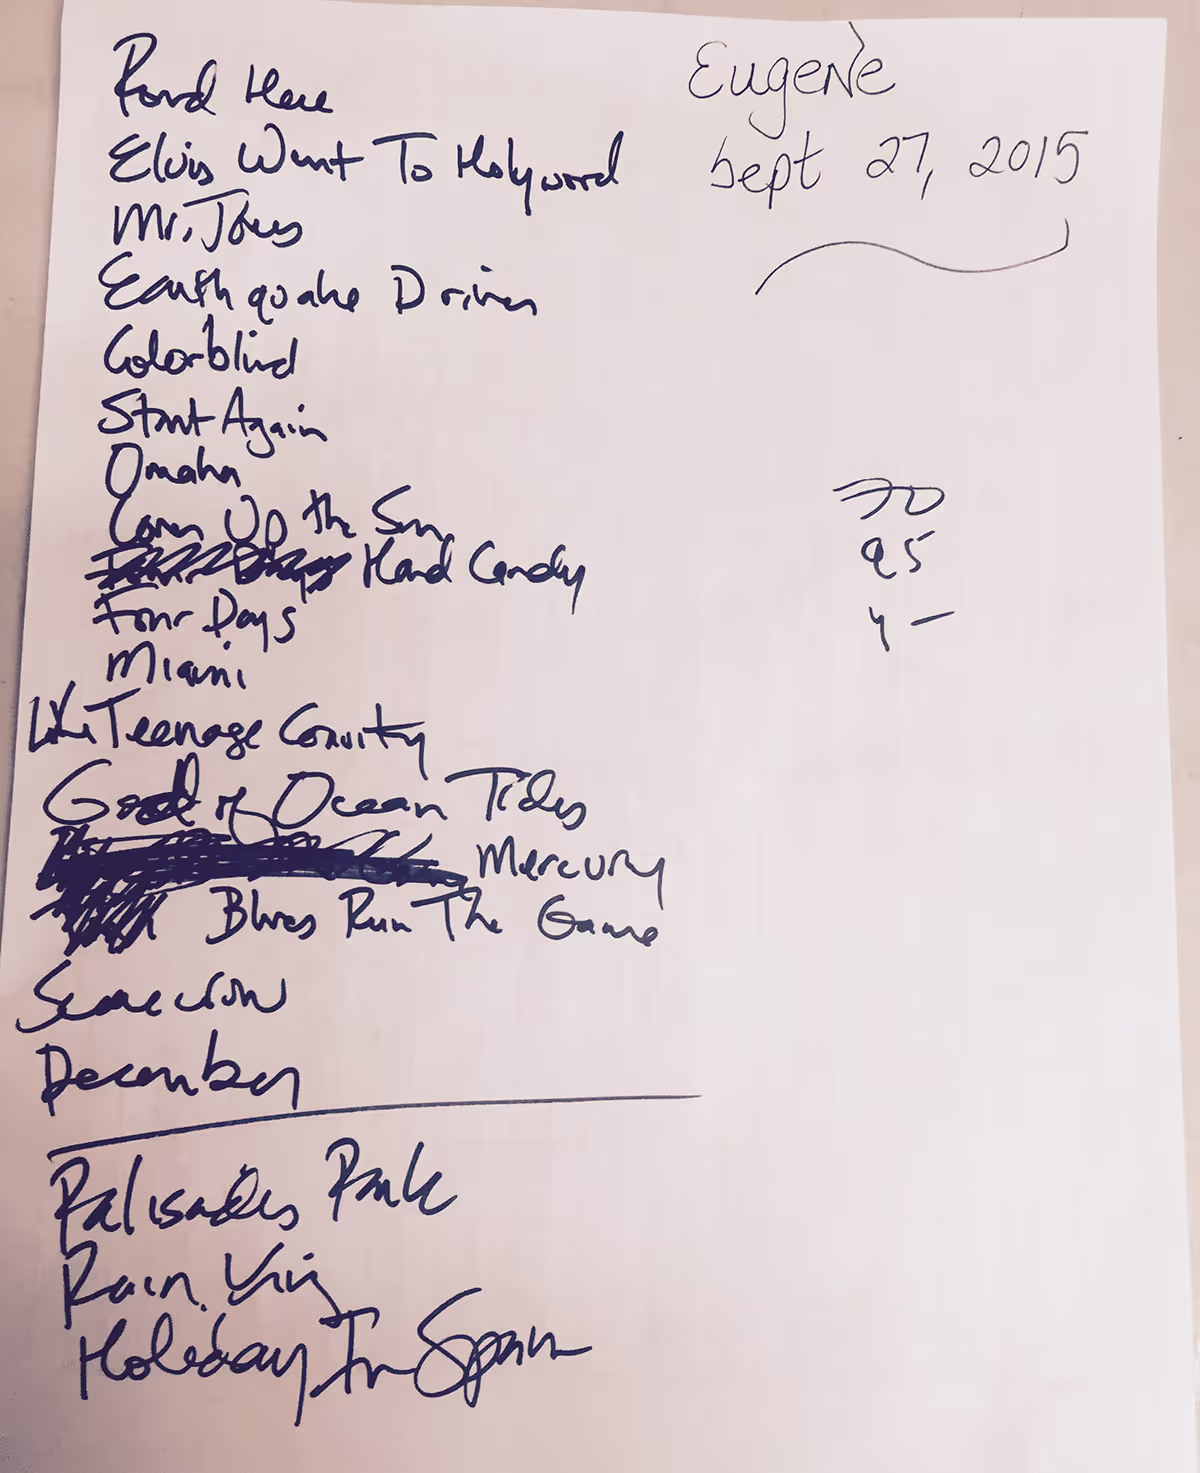 Round Here
Eugene
Elvis Went To Hollywood
Sept 27, 2015
Mr. Jones
Earthquake Driver
Colorblind
Start Again
Omaha
70
Cover Up the Sun
95
Hard Candy
Four Days
4 –
Miami
Like Teenage Gravity
God of Ocean Tides
Mercury
Blues Run The Game
Scarecrow
December
Palisades Park
Rain King
Holiday In Spain